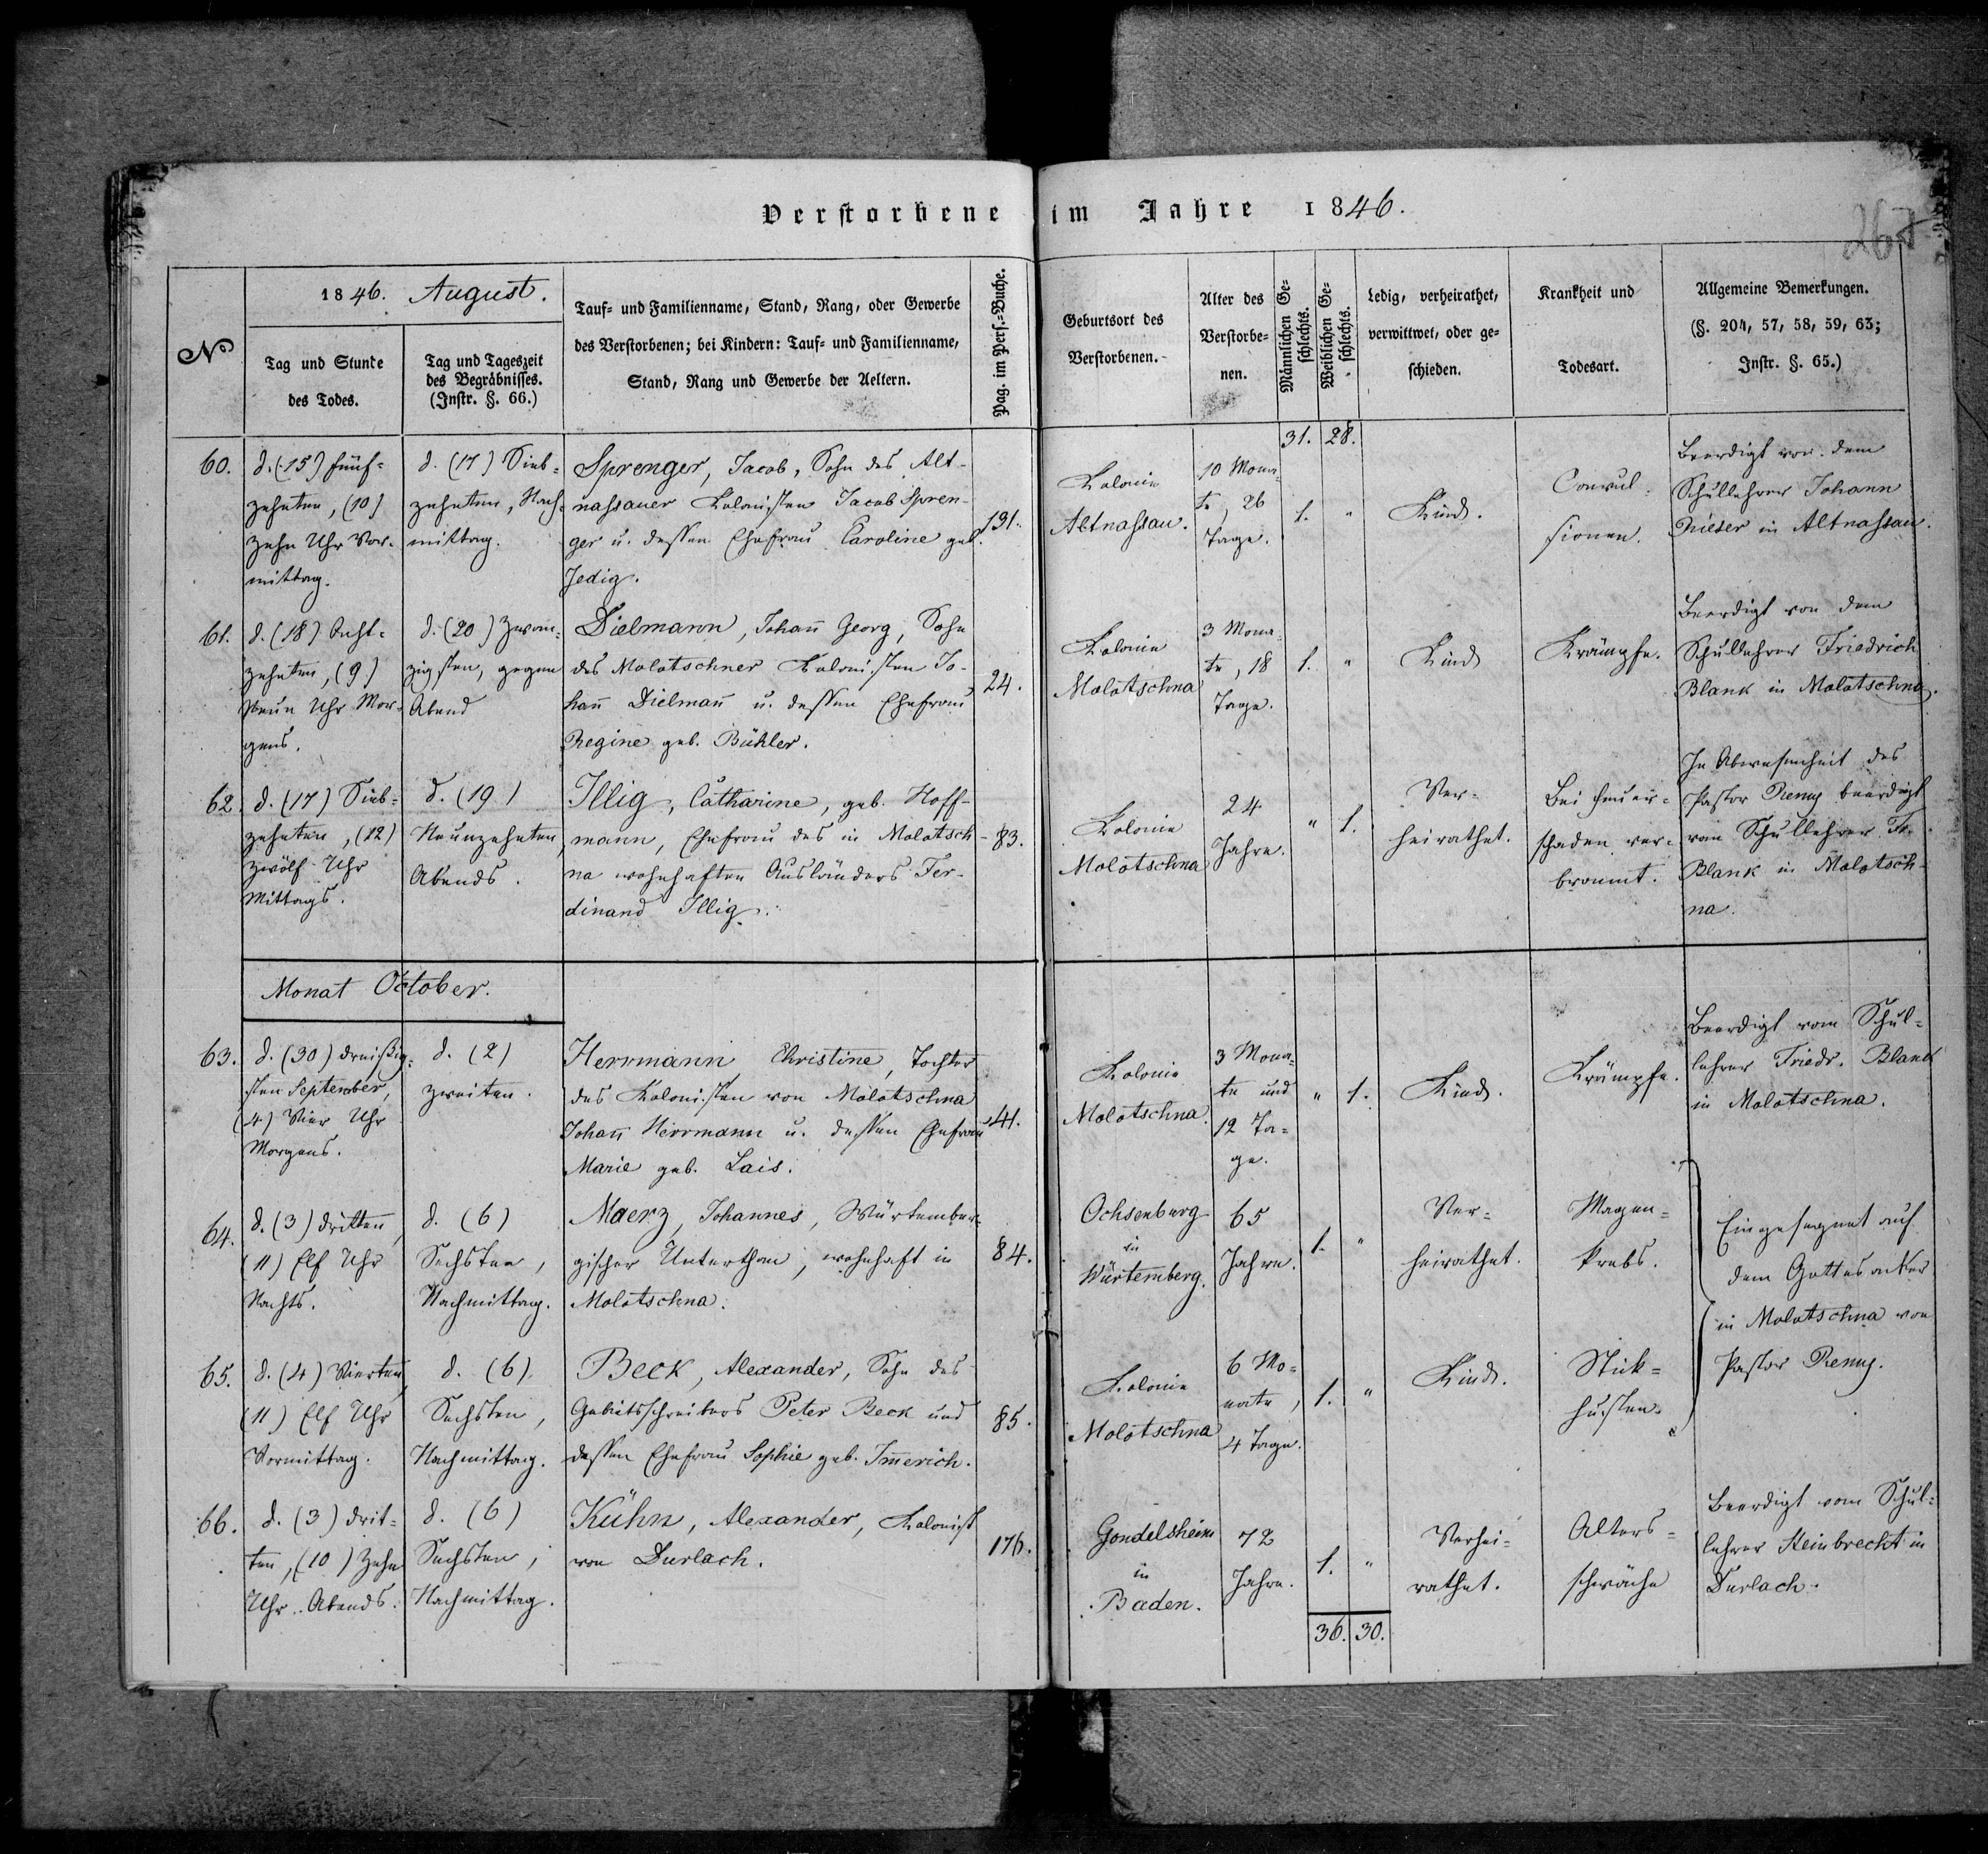 Verstorbene im Jahre 1846.
N
1846. August.
Tag und Stunde
des Todes.
Tag und Tageszeit
des Begräbnisses.
(Instr. §. 66.)
Tauf- und Familienname, Stand, Rang, oder Gewerbe
des Verstorbenen; bei Kindern: Tauf- und Familienname,
Stand, Rang und Gewerbe der Aeltern.
Pag. im Pers.-Buche.
Geburtsort des
Verstorbenen.
Alter des
Verstorbe-
nen.
Männlichen Ge-
schlechts.
Weiblichen Ge-
schlechts.
Ledig, verheirathet,
verwittwet, oder ge-
schieden.
Krankheit und
Todesart.
Allgemeine Bemerkungen.
(§. 204, 57, 58, 59, 63;
Instr. §. 65.)
31. 28.
60.
d. (15) fünf-
zehnten, (10)
zehn Uhr Vor-
mittag.
d. (17) Sieb-
zehnten, Nach-
mittag.
Sprenger, Jacob, Sohn des Alt-
nassauer Kolonisten Jacob Spren-
ger u. dessen Ehefrau Caroline geb.
Jedig.
131.
Kolonie
Altnassau.
10 Mona-
te, 26
Tage.
1. "
Kind.
Convul-
sionen.
Beerdigt von dem
Schullehrer Johann
Rieser in Altnassau.
61.
d. (18) Acht-
zehnten, (9)
Neun Uhr Mor-
gens.
d. (20) Zwan-
zigsten, gegen
Abend
Dielmann, Johann Georg, Sohn
des Molotschner Kolonisten Jo-
hann Dielmann u. dessen Ehefrau
Regine geb. Bühler.
24.
Kolonie
Molotschna
3 Mona-
te, 18
Tage.
1. "
Kind
Krämpfe.
Beerdigt von dem
Schullehrer Friedrich
Blank in Molotschna.
62.
d. (17) Sieb-
zehnten, (12)
zwölf Uhr
Mittags.
d. (19)
Neunzehnten,
Abends.
Illig, Catharine, geb. Hoff-
mann, Ehefrau des in Molotsch-
na wohnhaften Ausländers Fer-
dinand Illig.
83.
Kolonie
Molotschna
24
Jahre.
" 1.
Ver-
heirathet.
Bei Feuer-
schaden ver-
brannt.
In Abwesenheit des
Pastor beerdigt
vom Schullehrer Fr.
Blank in Molotsch-
na.
Monat October.
63.
d. (30) dreißig-
sten September,
(4) Vier Uhr
Morgens.
d. (2)
zweiten.
Herrmann Christine, Tochter
des Kolonisten von Molotschna
Johann Herrmann u. dessen Ehefrau
Marie geb. Lais.
41.
Kolonie
Molotschna.
3 Mona-
te und
12 Ta-
ge.
" 1.
Kind.
Krämpfe.
Beerdigt vom Schul-
lehrer Friedr. Blank
in Molotschna.
64.
d. (3) dritten,
(11) Elf Uhr
Nachts.
d. (6)
Sechsten,
Nachmittag.
Maerz, Johannes, Würtember-
gischer Unterthan, wohnhaft in
Molotschna.
84.
Ochsenburg
in
Würtemberg.
65
Jahre.
1. "
Ver-
heirathet.
Magen-
krebs.
Eingesegnet auf
dem Gottesacker
in Molotschna von
Pastor
65.
d. (4) Vierten
(11) Elf Uhr
Vormittag.
d. (6)
Sechsten,
Nachmittag.
Beck, Alexander, Sohn des
Gebietsschreibers Peter Beck und
dessen Ehefrau Sophie geb. Immerich.
85.
Kolonie
Molotschna
6 Mo-
nate,
4 Tage.
1. "
Kind.
Stick-
husten.
66.
d. (3) drit-
ten, (10) Zehn
Uhr Abends.
d. (6)
Sechsten,
Nachmittag.
Kühn, Alexander, Kolonist
von Durlach.
176.
Gondelsheim
in
Baden.
72
Jahre.
1. "
Verhei-
rathet.
Alters-
schwäche
Beerdigt vom Schul-
lehrer Steinbrecht in
Durlach.
36. 30.